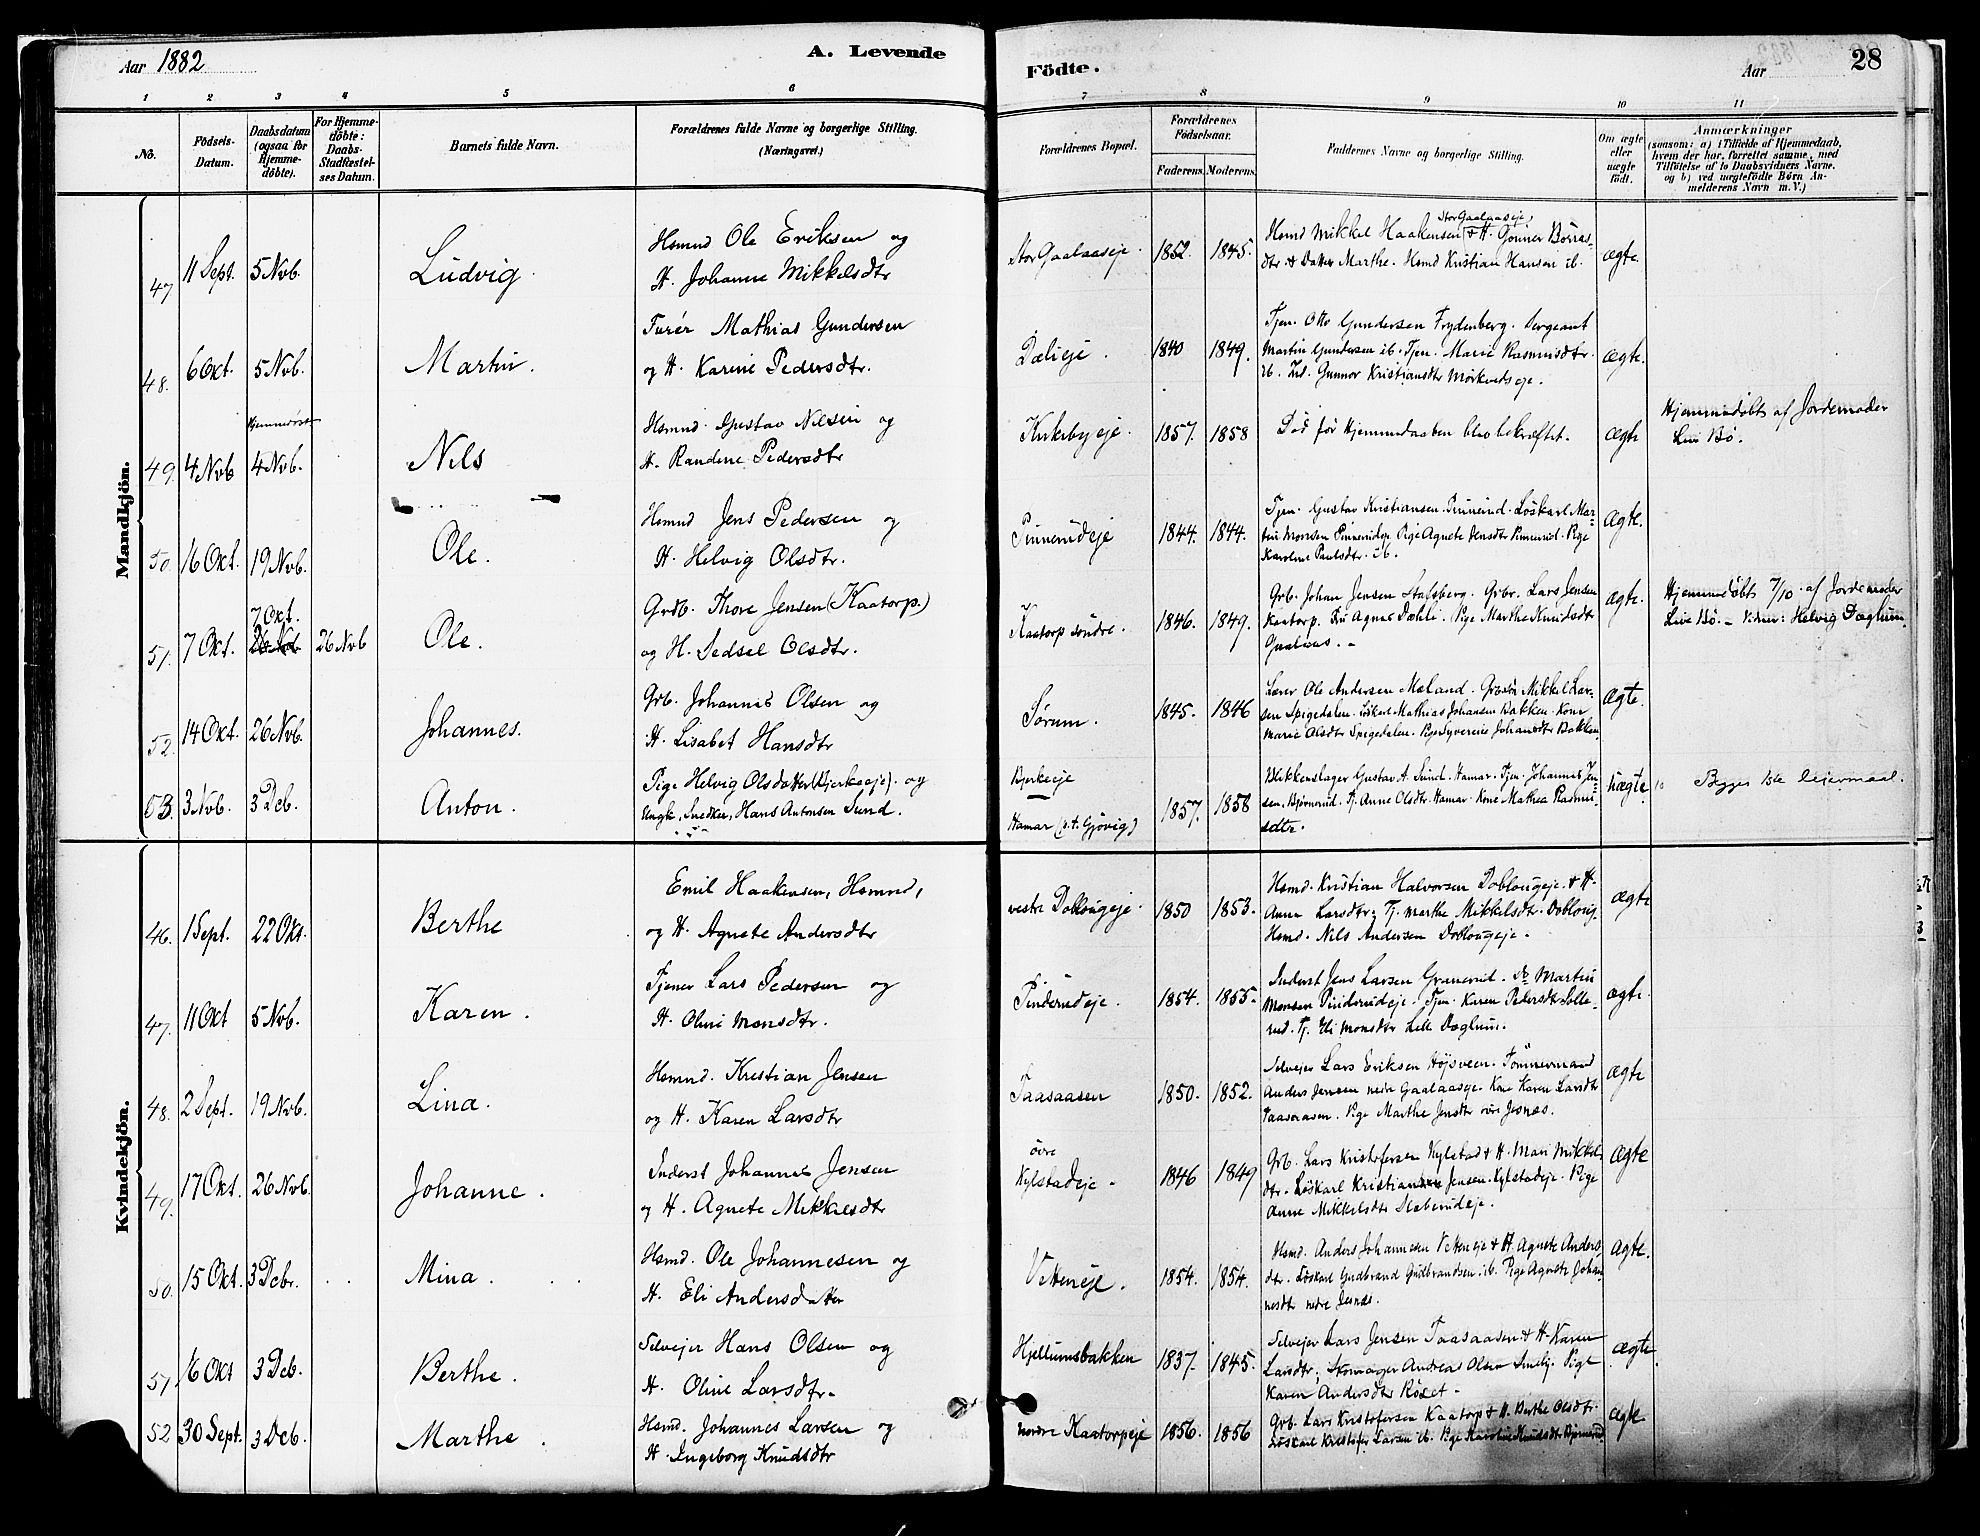 Aar 1882
A. Levende
Födte.
Aar
28
1 2 3 4 5 6 7 8 9 10 11
No.
Födsels-Datum.
Daabsdatum (ogsaa for Hjemmedöbte).
For Hjemmedöbte: Daabs-Stadfæstelses Datum.
Barnets fulde Navn.
Forældrenes fulde Navne og borgerlige Stilling. (Næringsvei.)
Forældrenes Bopæl.
Forældrenes Födselsaar.
Faderens. Moderens.
Faddernes Navne og borgerlige Stilling.
Om ægte eller uægte födt.
Anmærkninger
(saasom: a) i Tilfælde af Hjemmedaab,
hvem der har forrettet samme, med
Tilföielse af to Daabsvidners Navne.
og b) ved uægtefödte Börn An-
melderens Navn m.V.)
Mandkjön.
47 11 Sept. 5 Nvb. Ludvig.
Hsmnd Ole Eriksen og
H. Johanne Mikkelsdtr
Stor Gaalaaseje. 1852. 1845.
Stor Gaalaaseje,
Hsmd Mikkel Haakensen & H. Gønner Børres-
dtr. & Datter Marthe. Hsmd Kristian Hansen ib.
ægte.
48. 6 Okt. 5 Nvb. Martin.
Furér Mathias Gundersen
og H. Karine Pedersdtr.
Dæliejе. 1840 1849.
Tjen. Otto Gundersen Frydenberg. Sergeant
Martin Gundersen ib. Tjen. Marie Rasmusdtr.
ib. Ind. Gunnor Kristiansdtr Mørkvedseje.
ægte.
49. 4 Nvb Hjemmedøbt 4 Nvb. Nils
Hsmnd. Gustav Nilsen og
H. Randine Pedersdtr
Kirkebyeje. 1857. 1858
Død før Hjemmedaaben blev bekræftet.
ægte
Hjemmedøbt af Jordemoder
Live Bø.
50. 16 Okt. 19 Nvb. Ole.
Hsmnd Jens Pedersen og
H. Helvig Olsdtr.
Pinnerudeje 1844. 1844.
Tjen. Gustav Kristiansen. Pinnerud. Løskarl Mar-
tin Monsen Pinnerudeje Pige Agnete Jensdtr Pinnerud. Pige
Karoline Paulsdtr. ib.
ægte.
51. 7 Okt. 7 Okt. 26 Nvb Ole.
Grdb. Thore Jensen (Kaatorp.)
og H. Sedsel Olsdtr.
Kaatorp søndre. 1846. 1849.
Grb. Johan Jensen Stafsberg. Grbr. Lars Jensen
Kaatorp. Fru Agnes Dæhli. Pige Marthe Knudsdtr
Gaalaas. -
ægte.
Hjemmedøbt 7/10. af Jordemoder
Live Bø. - Vidner: Helvig Dæglum.
52. 14 Okt. 26 Nvb. Johannes.
Grb. Johannes Olsen og
H. Lisabet Hansdtr
Sørum. 1845. 1846
Lærer Ole Andersen Mæland. Grbsøn Mikkel Lar-
sen Spigedalen. Løskarl Mathias Johansen Bakken. Kone
Marie Olsdtr Spigedalen. Pige Syverine Johansdtr Bakken
ægte.
53. 3 Nvb. 3 Deb. Anton.
Pige Helvig Olsdatter (Bjerkeeje). og
Ungk., Snedker, Hans Antonsen Sund.
Bjerkeeje
Hamar (p.t. Gjøvig) 1857. 1858
Blikkenslager Gustav A. Sund. Hamar. Tjen. Johannes Jen-
sen, Bjørnerud. Tj. Anne Olsdtr. Hamar. Kone Mathea Rasmu-
sdtr.
uægte.
Begges 1ste leiermaal.
Kvindekjön.
46. 1 Sept. 22 Okt. Berthe
Emil Haakensen, Hsmnd,
og H. Agnete Andersdtr
vestre Doblougeje. 1850 1853.
Hsmd. Kristian Halvorsen Doblougeje. & H.
Anne Larsdtr; Tj. Marthe Mikkelsdtr. Doblоug,
Hsmd. Nils Andersen Doblougeje.
ægte
47. 11 Okt 5 Nvb. Karen.
Tjener Lars Pedersen og
H. Oline Monsdtr.
Pinderudeje. 1854. 1855.
Inderst Jens Larsen Granerud. Do Martin
Monsen Pinderudeje. Tjen. Karen Pedersdtr Solle-
rud. Tj. Eli Monsdtr Lille Dæglum.
ægte.
48. 2 Sept. 19 Nvb. Lina.
Hsmnd. Kristian Jensen
og H. Karen Larsdtr
Taasaasen 1850. 1852.
Selvejer Lars Eriksen Højsveen. Tømmermand
Anders Jensen nedre Gaalaaseje. Kone Karen Larsdtr
Taasaasen. Pige Marthe Jensdtr øvre Jesnæs.
ægte
49. 17 Okt. 26 Nvb. Johanne.
Inderst Johannes Jensen
og H. Agnete Mikkelsdtr
øvre
Kylstadeje. 1846 1849
Grb. Lars Kristofersen Kylstad & H. Mari Mikkels
dtr. Løskarl Kristian Jensen. Kylstadeje. Pige
Anne Mikkelsdtr Slaberudeje.
ægte
50. 15 Okt. 3 Debr. Mina.
Hsmd. Ole Johannesen og
H. Eli Andersdatter
Vetteneje. 1854. 1854.
Hsmd. Anders Johannesen Vetteneje & H. Agnete Anders-
dtr. Løskarl Gudbrand Gudbrandsen. ib. Pige Agnete Johan-
nesdtr nedre Jesnæs.
ægte.
51. 16 Okt 3 Deb. Berthe.
Selvejer Hans Olsen og
H. Oline Larsdtr.
Hjellumsbakken 1837. 1845.
Selvejer Lars Jensen Taasaasen & H. Karen
Larsdtr; Skomager Andreas Olsen Pige
Karen Andersdtr Røset.
ægte
52 30 Sept. 3 Deb. Marthe.
Hsmd. Johannes Larsen og
H. Ingeborg Knudsdtr
nordre Kaatorpeje 1856. 1856
Grb. Lars Kristofersen Kaatorp & H. Berthe Olsdtr.
Løskarl Kristofer Larsen ib. Pige Karoline Knudsdtr Bjørnerud
ægte